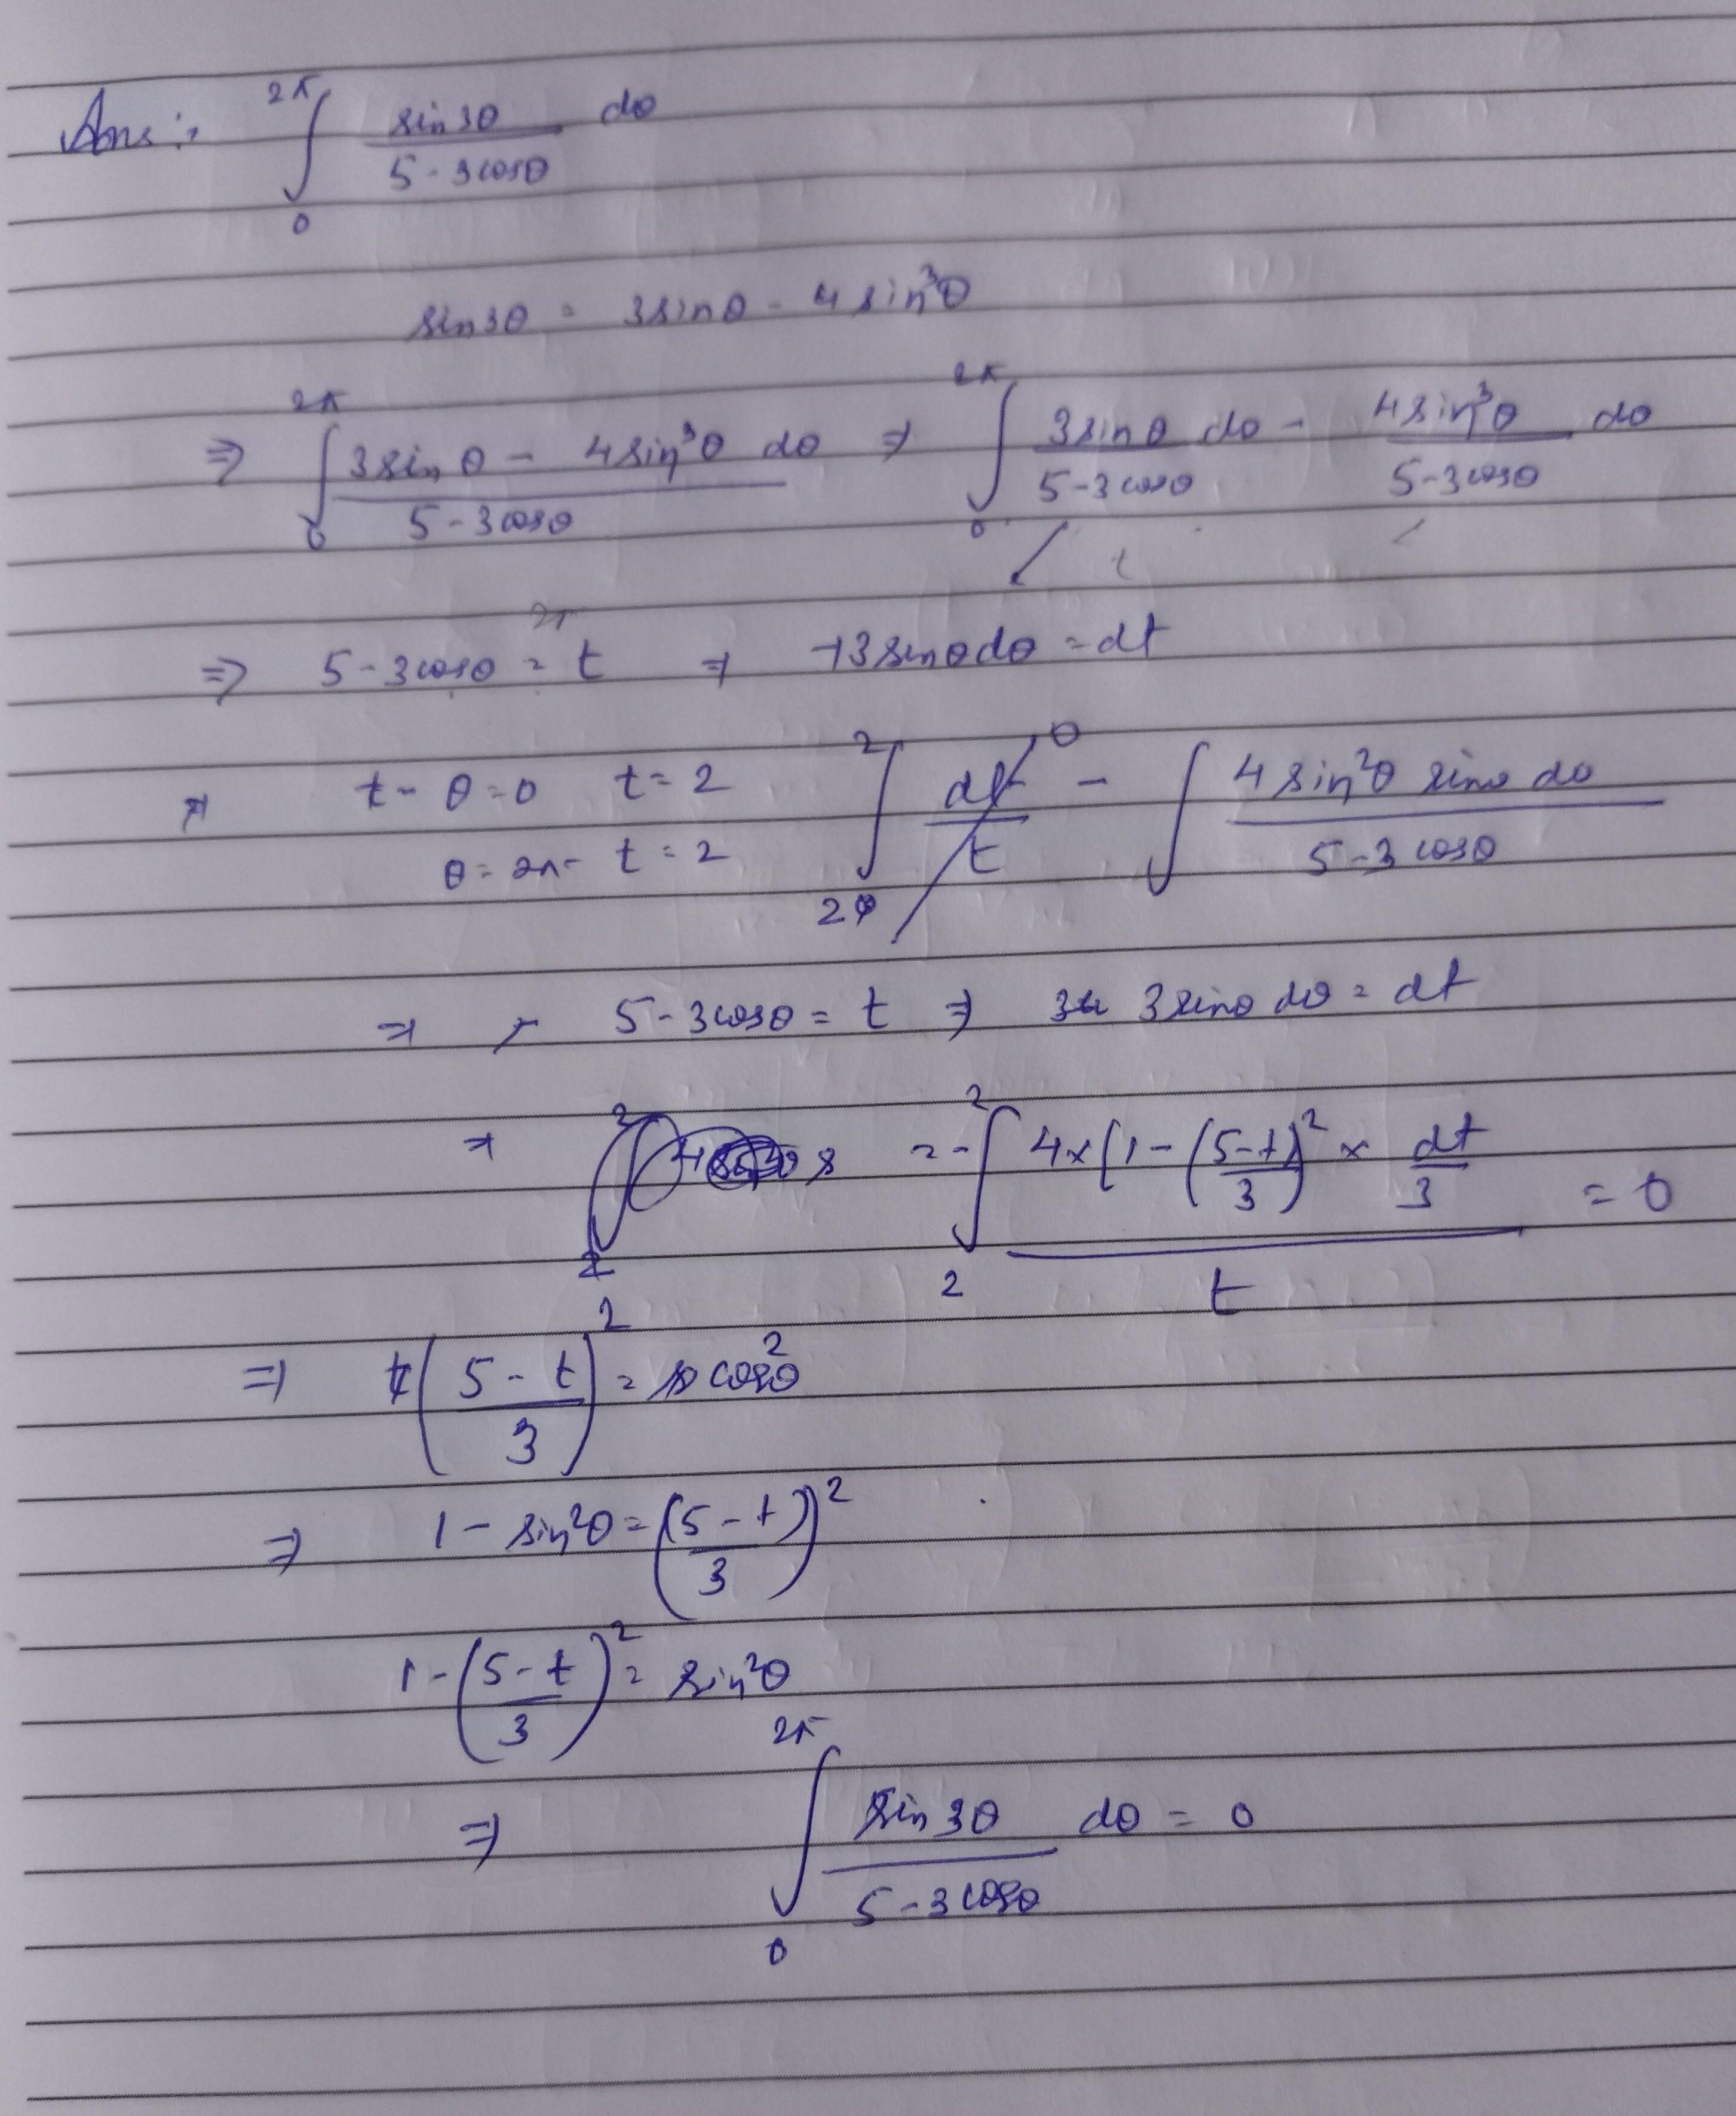 Ans:- ∫₀^2π sin3θ/(5-3cosθ) dθ
sin3θ = 3sinθ - 4sin³θ
⇒ ∫₀^2π (3sinθ - 4sin³θ dθ)/(5-3cosθ) ⇒ ∫₀^2π 3sinθ dθ/(5-3cosθ) - 4sin³θ/(5-3cosθ) dθ
t
⇒ 5-3cosθ = t ⇒ +3sinθdθ = dt
⇒ t- θ=0 t=2 ∫₂² dt/t 0 - ∫ 4sin²θ sinθ dθ/(5-3cosθ)
θ=2π- t=2
⇒ 5-3cosθ = t ⇒ 3sinθ dθ = dt
⇒ = -∫₂² 4×[1-((5-t)/3)² × dt/3 / t = 0
⇒ ((5-t)/3)² = cos²θ
⇒ 1-sin²θ = ((5-t)/3)²
1-((5-t)/3)² = sin²θ
⇒ ∫₀^2π sin3θ/(5-3cosθ) dθ = 0